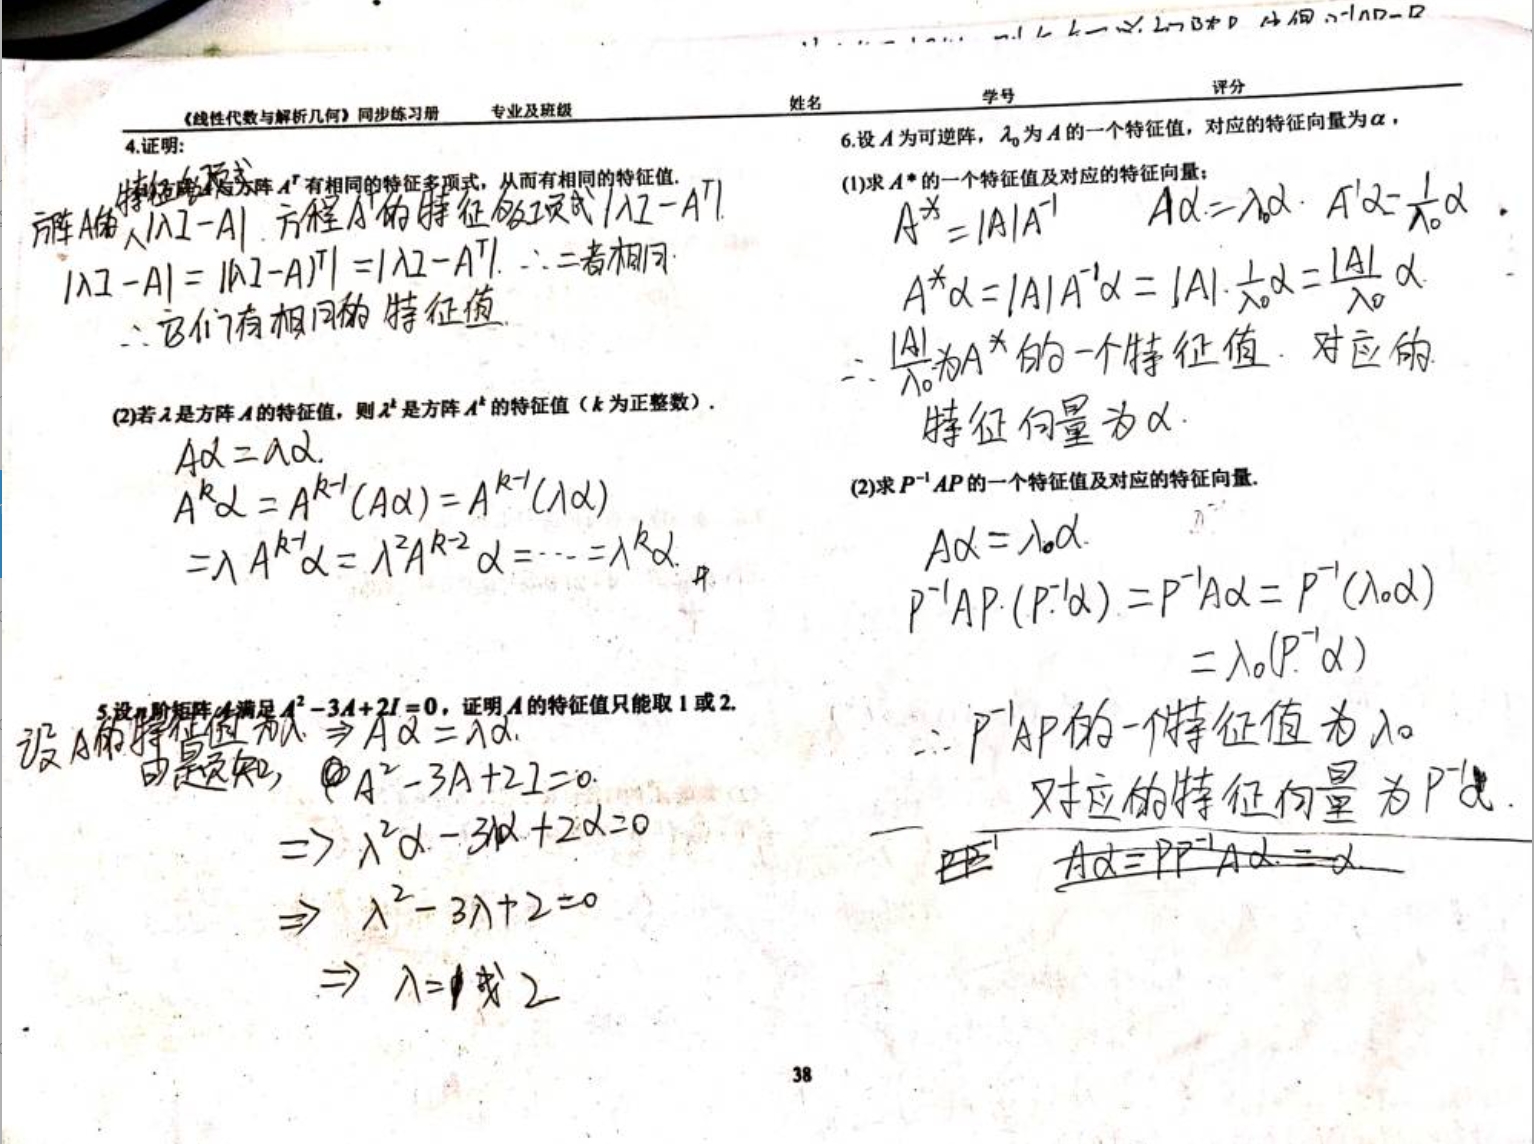 《线性代数与解析几何》同步练习册 专业及班级 姓名 学号 评分
4.证明:
特征多项式
方阵 Aᵀ 有相同的特征多项式，从而有相同的特征值.
方阵A的 |λI-A|. 方程Aᵀ的特征多项式|λI-Aᵀ|.
|λI-A| = |(λI-A)ᵀ| = |λI-Aᵀ|. ∴二者相同.
∴它们有相同的特征值.
(2)若 λ 是方阵 A 的特征值，则 λᵏ 是方阵 Aᵏ 的特征值（k 为正整数）.
Aα=λα.
Aᵏα = Aᵏ⁻¹(Aα) = Aᵏ⁻¹(λα)
=λAᵏ⁻¹α = λ²Aᵏ⁻²α = ··· =λᵏα. #
5.设 n 阶矩阵 A 满足 A²-3A+2I=0，证明 A 的特征值只能取 1 或 2.
设A的特征值为λ ⇒ Aα=λα.
由题知, A²-3A+2I=0.
⇒ λ²α-3λα+2α=0
⇒ λ²-3λ+2=0
⇒ λ=1或2
6.设 A 为可逆阵，λ₀ 为 A 的一个特征值，对应的特征向量为 α，
(1)求 A* 的一个特征值及对应的特征向量；
A* =|A|A⁻¹ Aα=λ₀α. A⁻¹α=1/λ₀ α
A*α=|A|A⁻¹α=|A|·1/λ₀ α=|A|/λ₀ α.
∴ |A|/λ₀ 为A*的一个特征值. 对应的
特征向量为α.
(2)求 P⁻¹AP 的一个特征值及对应的特征向量.
Aα=λ₀α.
P⁻¹AP·(P⁻¹α)=P⁻¹Aα=P⁻¹(λ₀α)
=λ₀(P⁻¹α)
∴ P⁻¹AP的一个特征值为λ₀
对应的特征向量为P⁻¹α.
PP⁻¹ Aα=PP⁻¹Aα=α.
38